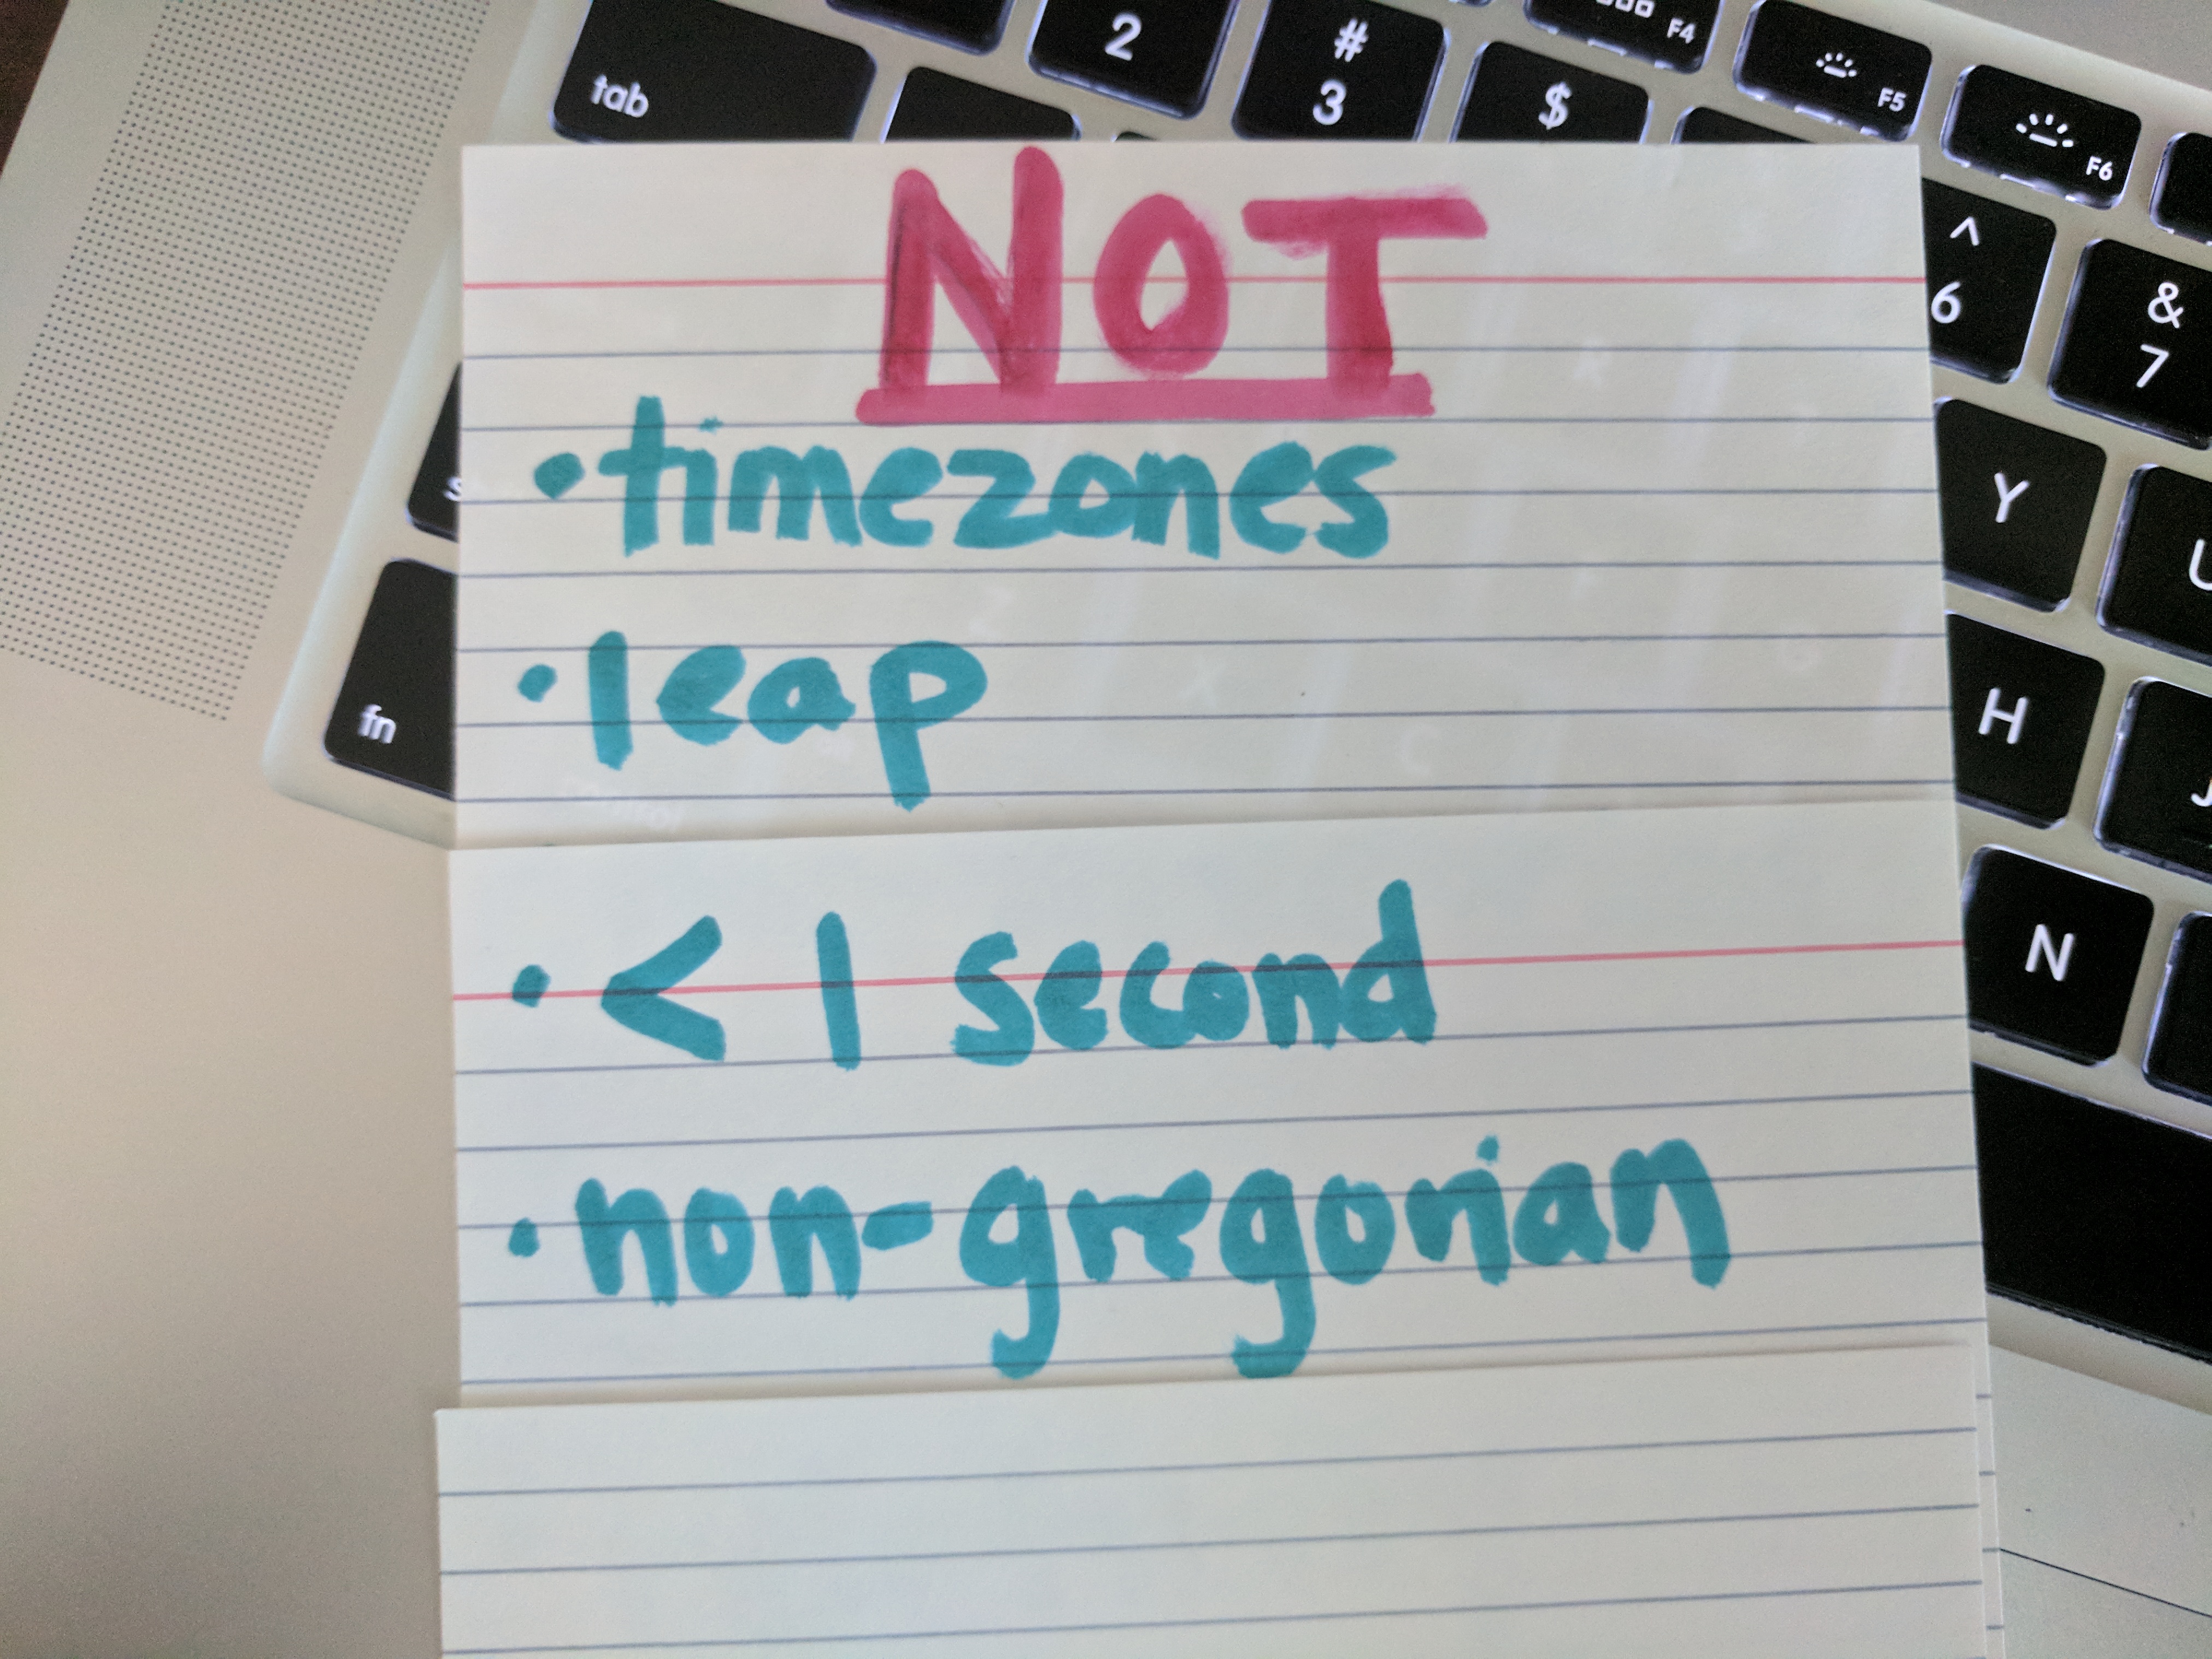 tab
2
# 3
$
F4
F5
F6
^ 6
& 7
NOT
• timezones
Y
U
• leap
fn
H
J
• < 1 second
N
• non-gregorian